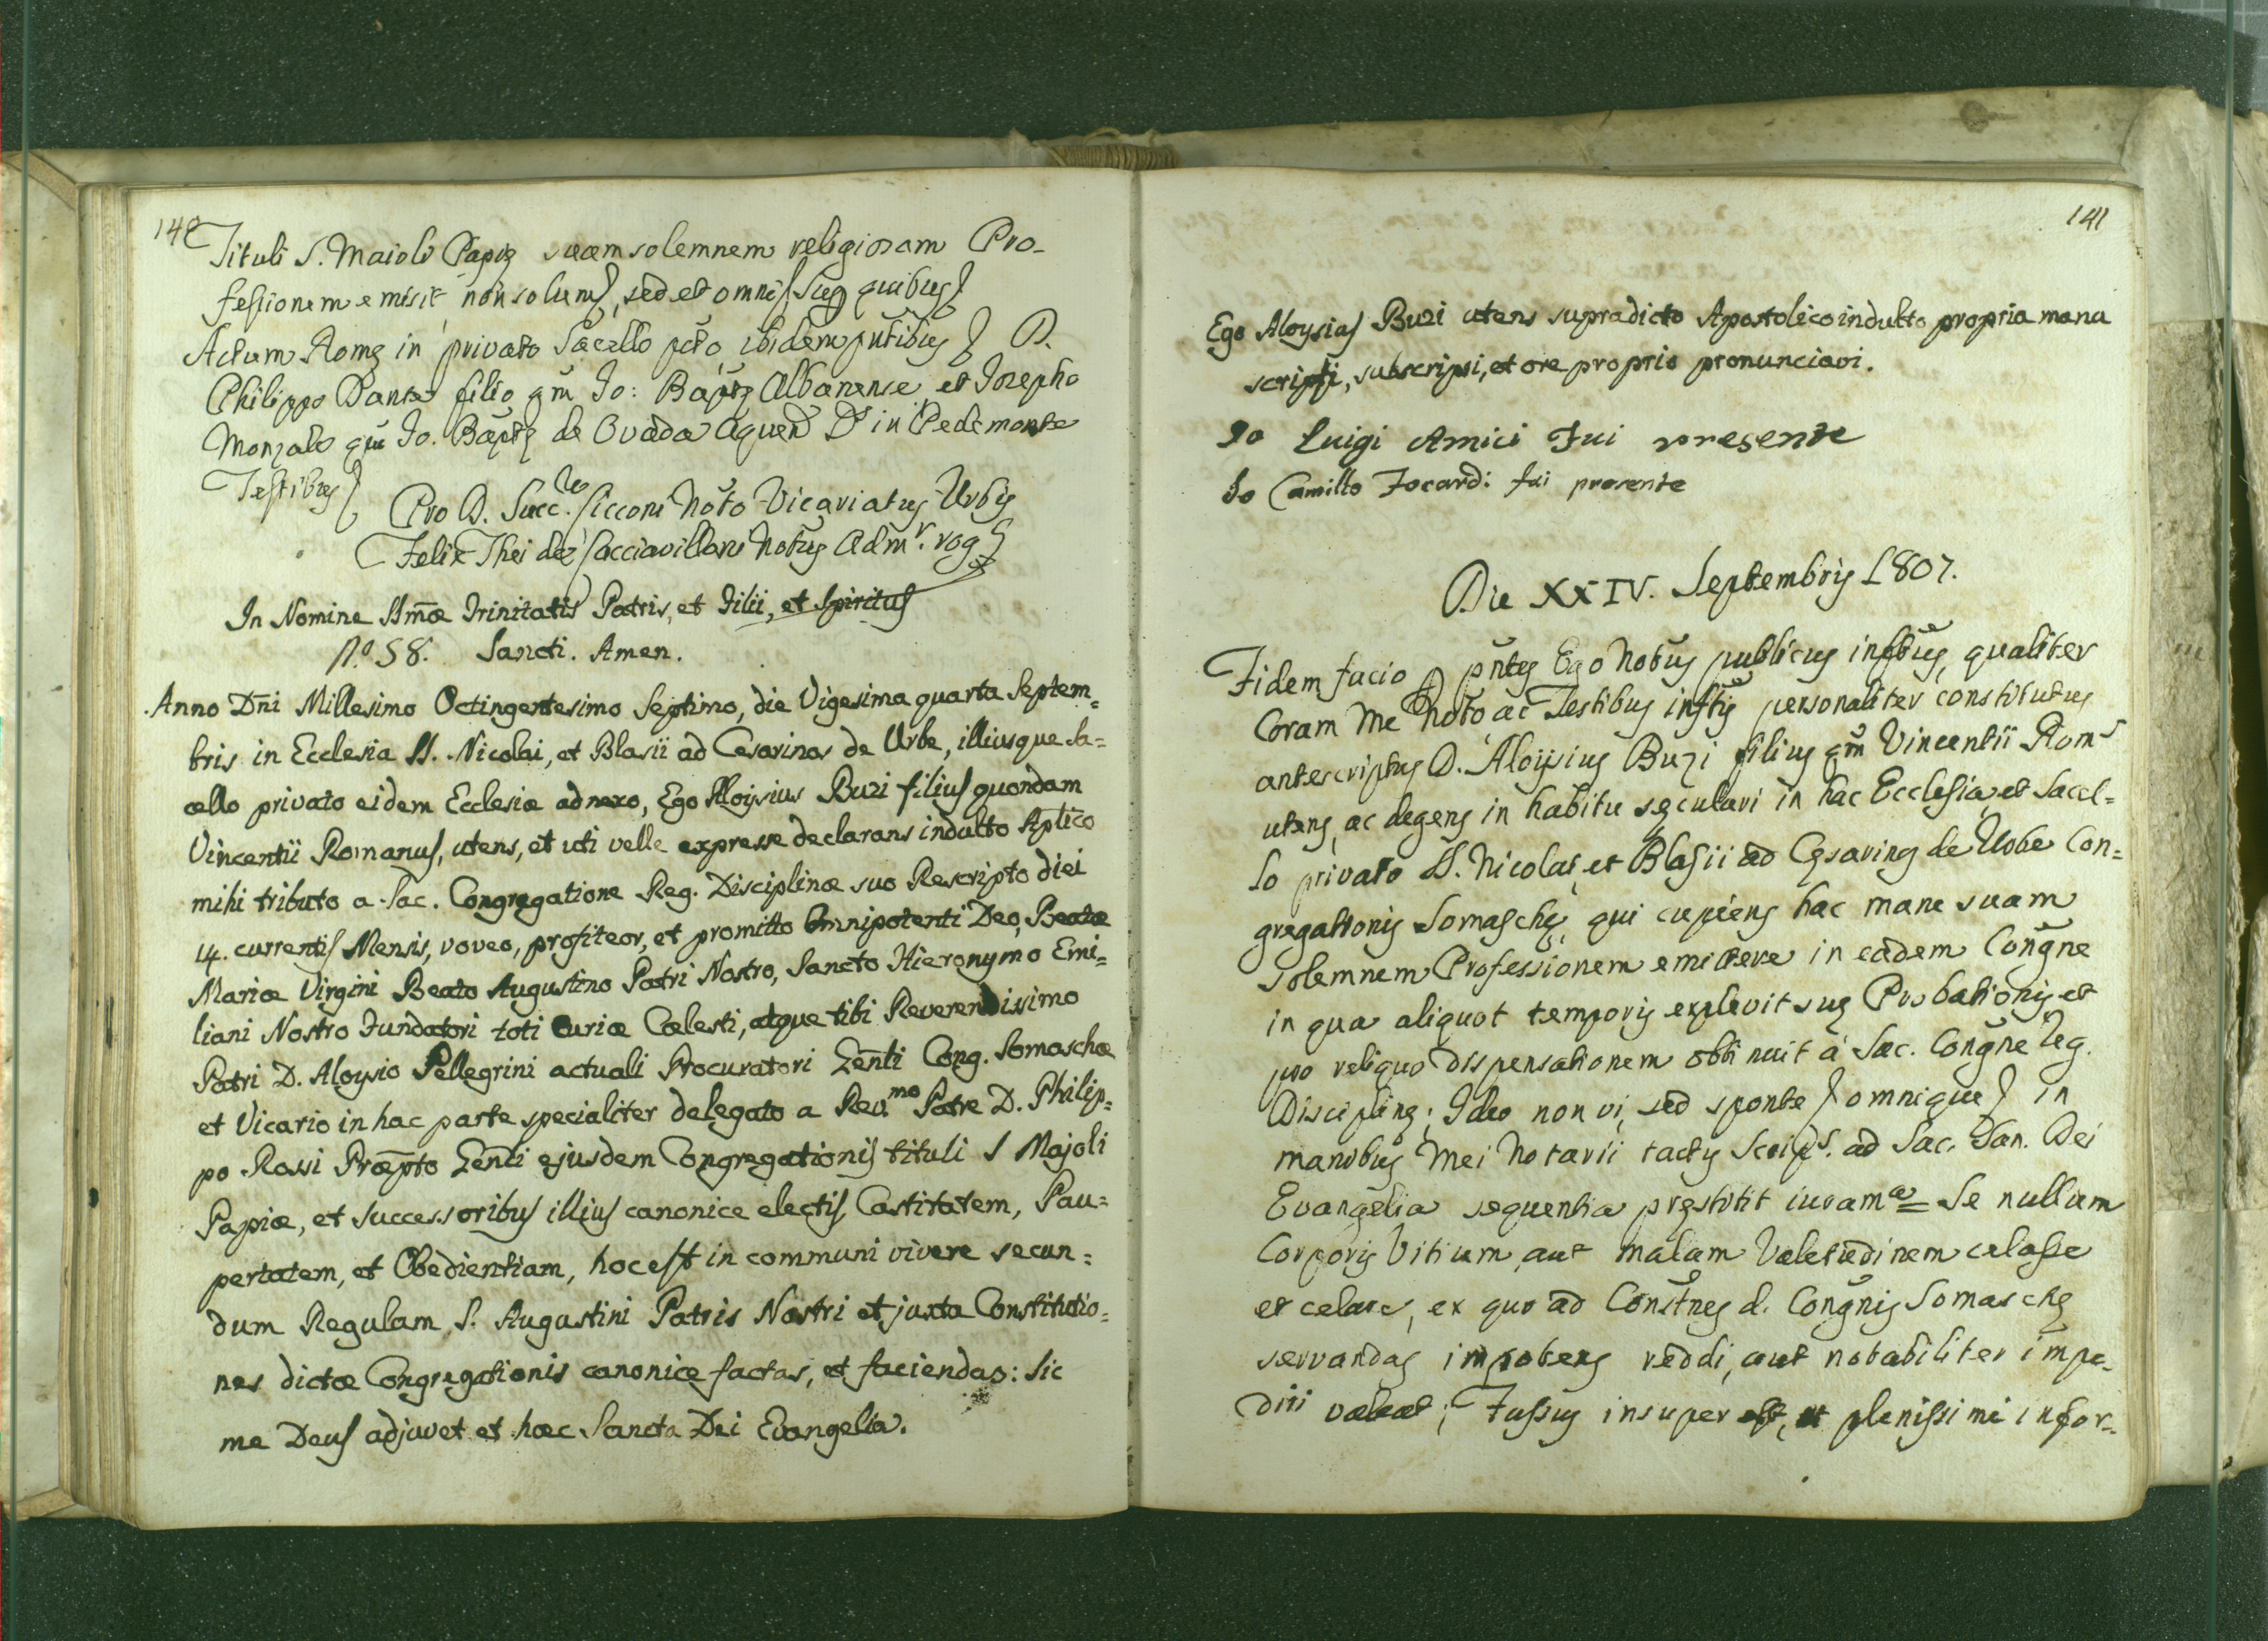 140
Tituli S. Maioli Papię suam solemnem religiosam Pro-
fessionem emisit non solum, sed et omni Sup quibus
Actum Romę in privato Sacello pcto, ibidem pntibus D.
Philippo Danta filio qm Jo: Baptę Albanense, et Josepho
Monzalo qm Jo. Baptę de Ovada Aquen Ds in Pedemonte
Testibus
Pro D. Succ. Cicconi Noto Vicariatus Urbis
Felix Thei de Cacciavillani Notus Adm. rog
In Nomine SSmæ Trinitatis Patris, et Filii, et Spiritus
N.º 58. Sancti. Amen.
Anno Dni Millesimo Octingentesimo Septimo, die Vigesima quarta Septem=
bris in Ecclesia SS. Nicolai, et Blasii ad Cesarinos de Urbe, illiusque Sa=
cello privato eidem Ecclesiæ adnexo, Ego Aloysius Buzi filius quondam
Vincentii Romanus, utens, et uti velle expresse declarans indulto Aplico
mihi tributo a Sac. Congregatione Reg. Disciplinæ suo Rescripto diei
14. currentis Mensis, voveo, profiteor, et promitto Omnipotenti Deo, Beatæ
Mariæ Virgini Beato Augustino Patri Nostro, Sancto Hieronymo Emi=
liani Nostro Fundatori toti Curiæ Cælesti, atque tibi Reverendissimo
Patri D. Aloysio Pellegrini actuali Procuratori Genli Cong. Somaschæ
et Vicario in hac parte specialiter delegato a Rev.mo Patre D. Philip=
po Rossi Præpto Genli ejusdem Congregationis tituli S Majoli
Papiæ, et successoribus illius canonice electis, Castitatem, Pau=
pertatem, et Obedientiam, hoc est in communi vivere secun=
dum Regulam S. Augustini Patris Nostri et juxta Constitutio=
nes dictæ Congregationis canonice factas, et faciendas: Sic
me Deus adjuvet et hæc Sancta Dei Evangelia.
141
Ego Aloysius Buzi utens supradicto Apostolico indulto propria manu
scripsi, subscripsi, et ore proprio pronunciavi.
Io Luigi Amici Fui presente
Io Camillo Focardi fui presente
Die XXIV. Septembris 1807.
Fidem facio p pntes Ego Notus publicus infrus, qualiter
Coram Me Noto, ac Testibus inftis personaliter constitutus
antescriptus D. Aloysius Buzi filius qm Vincentii Roms
utens, ac degens in habitu sęculari in hac Ecclesia, et Sacel=
lo privato SS. Nicolai, et Blasii ad Cęsarinos de Urbe Con=
gregationis Somaschę, qui cupiens hac mane suam
solemnem Professionem emittere in eadem Congne
in qua aliquot temporis explevit suę Probationis et
pro reliquo dispensationem obtinuit à Sac. Congne Reg.
Disciplinę; Ideo non vi, sed sponte omnique in
manibus Mei Notarii tactis Scrips. ad Sac. San. Dei
Evangelia sequentia pręstitit iuram.a = Se nullum
Corporis Vitium, aut malam Valetudinem celasse
et celare, ex quo ad Constnes d. Congnis Somaschę
servandas impotens reddi, aut notabiliter impe-
diri valeat; Jussus insuper est, ut plenissime infor-